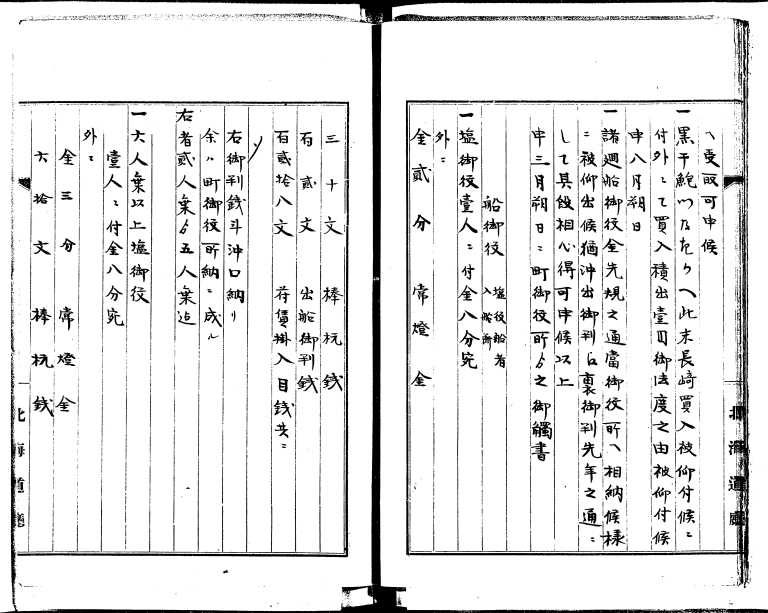 ヘ受取可申候
一黒干鮑
此末長崎買入被仰付候ニ
付外ニて買入積出壹円御法度之由被仰付候
申八月朔日
一諸廻船御役金先規之通當御役所ヘ相納候様
ニ被仰出候猶沖出御判ハ裏御判先年之通ニ
して其段相心得可申候以上
申三月朔日ニ町御役所ゟ之御觸書
船御役
一塩御役壹人ニ付金八分宛
外ニ
金貳分 常燈金
三十文 棒杭銭
百貳文 出船御判銭
百貳拾八文 荷賃掛入目銭共ニ
〆
右御判銭斗沖口納リ
余ハ町御役所納ニ成ル
右者貳人乗ゟ五人乗迄
一六人乗以上塩御役
壹人ニ付金八分宛
外ニ
金三分 常燈金
六拾文 棒杭銭
北海道廳
北海道廳